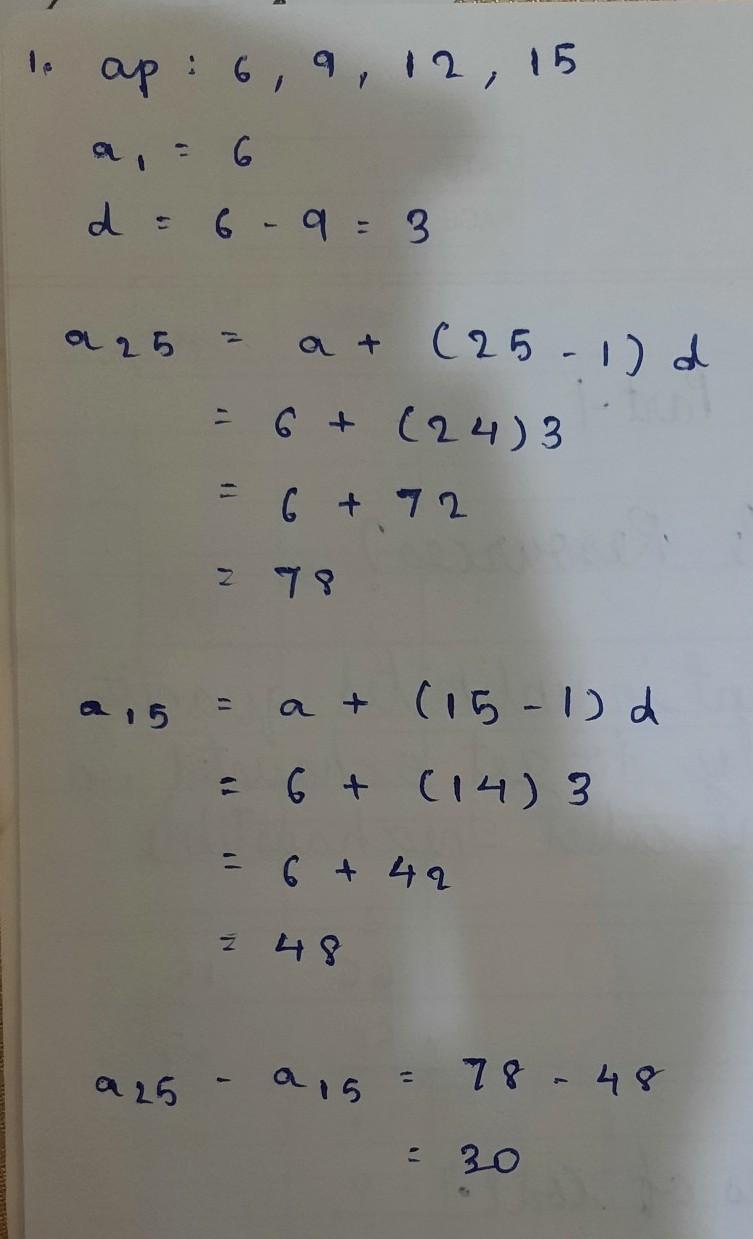 1. ap : 6, 9, 12, 15
a₁ = 6
d = 6 - 9 = 3
a₂₅ = a + (25 - 1) d
= 6 + (24) 3
= 6 + 72
= 78
a₁₅ = a + (15 - 1) d
= 6 + (14) 3
= 6 + 42
= 48
a₂₅ - a₁₅ = 78 - 48
= 30